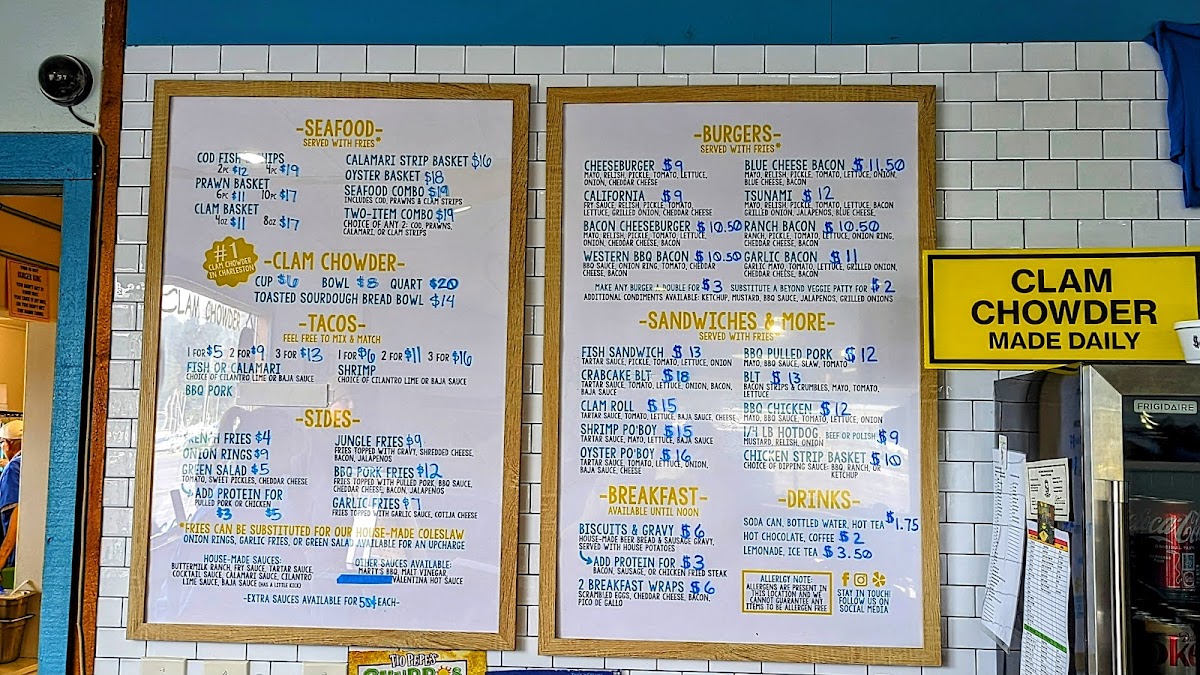 -SEAFOOD-
SERVED WITH FRIES*
COD FISH CHIPS
2pc $12 4pc $19
PRAWN BASKET
6pc $11 10pc $17
CLAM BASKET
4oz $11 8oz $17
CALAMARI STRIP BASKET $16
OYSTER BASKET $18
SEAFOOD COMBO $19
INCLUDES COD, PRAWNS & CLAM STRIPS
TWO-ITEM COMBO $19
CHOICE OF ANY 2: COD, PRAWNS,
CALAMARI, OR CLAM STRIPS
#1
CLAM CHOWDER
IN CHARLESTON
-CLAM CHOWDER-
CUP $6 BOWL $8 QUART $20
TOASTED SOURDOUGH BREAD BOWL $14
-TACOS-
FEEL FREE TO MIX & MATCH
1 FOR $5 2 FOR $9 3 FOR $13
FISH OR CALAMARI
CHOICE OF CILANTRO LIME OR BAJA SAUCE
BBQ PORK
1 FOR $6 2 FOR $11 3 FOR $16
SHRIMP
CHOICE OF CILANTRO LIME OR BAJA SAUCE
-SIDES-
FRENCH FRIES $4
ONION RINGS $9
GREEN SALAD $5
TOMATO, SWEET PICKLES, CHEDDAR CHEESE
ADD PROTEIN FOR
PULLED PORK OR CHICKEN
$3 $5
JUNGLE FRIES $9
FRIES TOPPED WITH GRAVY, SHREDDED CHEESE,
BACON, JALAPENOS
BBQ PORK FRIES $12
FRIES TOPPED WITH PULLED PORK, BBQ SAUCE,
CHEDDAR CHEESE, BACON, JALAPENOS
GARLIC FRIES $7
FRIES TOPPED WITH GARLIC SAUCE, COTIJA CHEESE
*FRIES CAN BE SUBSTITUTED FOR OUR HOUSE-MADE COLESLAW
ONION RINGS, GARLIC FRIES, OR GREEN SALAD AVAILABLE FOR AN UPCHARGE
HOUSE-MADE SAUCES:
BUTTERMILK RANCH, FRY SAUCE, TARTAR SAUCE,
COCKTAIL SAUCE, CALAMARI SAUCE, CILANTRO
LIME SAUCE, BAJA SAUCE (HAS A LITTLE KICK)
OTHER SAUCES AVAILABLE:
MARTY'S BBQ, MALT VINEGAR,
VALENTINA HOT SAUCE
-EXTRA SAUCES AVAILABLE FOR 55¢ EACH-
-BURGERS-
SERVED WITH FRIES*
CHEESEBURGER $9
MAYO, RELISH, PICKLE, TOMATO, LETTUCE,
ONION, CHEDDAR CHEESE
CALIFORNIA $9
FRY SAUCE, RELISH, PICKLE, TOMATO,
LETTUCE, GRILLED ONION, CHEDDAR CHEESE
BACON CHEESEBURGER $10.50
MAYO, RELISH, PICKLE, TOMATO, LETTUCE,
ONION, CHEDDAR CHEESE, BACON
WESTERN BBQ BACON $10.50
BBQ SAUCE, ONION RING, TOMATO, CHEDDAR
CHEESE, BACON
BLUE CHEESE BACON $11.50
MAYO, RELISH, PICKLE, TOMATO, LETTUCE, ONION,
BLUE CHEESE, BACON
TSUNAMI $12
MAYO, RELISH, PICKLE, TOMATO, LETTUCE, BACON
GRILLED ONION, JALAPENOS, BLUE CHEESE,
RANCH BACON $10.50
RANCH, PICKLE, TOMATO, LETTUCE, ONION RING,
CHEDDAR CHEESE, BACON
GARLIC BACON $11
GARLIC MAYO, TOMATO, LETTUCE, GRILLED ONION,
CHEDDAR CHEESE, BACON
MAKE ANY BURGER A DOUBLE FOR $3 SUBSTITUTE A BEYOND VEGGIE PATTY FOR $2
ADDITIONAL CONDIMENTS AVAILABLE: KETCHUP, MUSTARD, BBQ SAUCE, JALAPENOS, GRILLED ONIONS
-SANDWICHES & MORE-
SERVED WITH FRIES*
FISH SANDWICH $13
TARTAR SAUCE, PICKLE, TOMATO, LETTUCE, ONION
CRABCAKE BLT $18
TARTAR SAUCE, TOMATO, LETTUCE, ONION, BACON,
BAJA SAUCE
CLAM ROLL $15
TARTAR SAUCE, TOMATO, LETTUCE, BAJA SAUCE, CHEESE
SHRIMP PO'BOY $15
TARTAR SAUCE, MAYO, LETTUCE, BAJA SAUCE
OYSTER PO'BOY $16
TARTAR SAUCE, TOMATO, LETTUCE, ONION,
BAJA SAUCE, CHEESE
BBQ PULLED PORK $12
MAYO, BBQ SAUCE, SLAW, TOMATO
BLT $13
BACON STRIPS & CRUMBLES, MAYO, TOMATO,
LETTUCE
BBQ CHICKEN $12
MAYO, BBQ SAUCE, TOMATO, LETTUCE, ONION
1/4 LB HOTDOG, BEEF OR POLISH $9
MUSTARD, RELISH, ONION
CHICKEN STRIP BASKET $10
CHOICE OF DIPPING SAUCE: BBQ, RANCH, OR
KETCHUP
-BREAKFAST-
AVAILABLE UNTIL NOON
BISCUITS & GRAVY $6
HOUSE-MADE BEER BREAD & SAUSAGE GRAVY,
SERVED WITH HOUSE POTATOES
ADD PROTEIN FOR $3
BACON, SAUSAGE, OR CHICKEN FRIED STEAK
2 BREAKFAST WRAPS $6
SCRAMBLED EGGS, CHEDDAR CHEESE, BACON,
PICO DE GALLO
-DRINKS-
SODA CAN, BOTTLED WATER, HOT TEA $1.75
HOT CHOCOLATE, COFFEE $2
LEMONADE, ICE TEA $3.50
ALLERGY NOTE:
ALLERGENS ARE PRESENT IN
THIS LOCATION AND WE
CANNOT GUARANTEE ANY
ITEMS TO BE ALLERGEN FREE
STAY IN TOUCH!
FOLLOW US ON
SOCIAL MEDIA
CLAM
CHOWDER
MADE DAILY
FRIGIDAIRE
BURGER KING
TIO PEPE'S
CHURROS